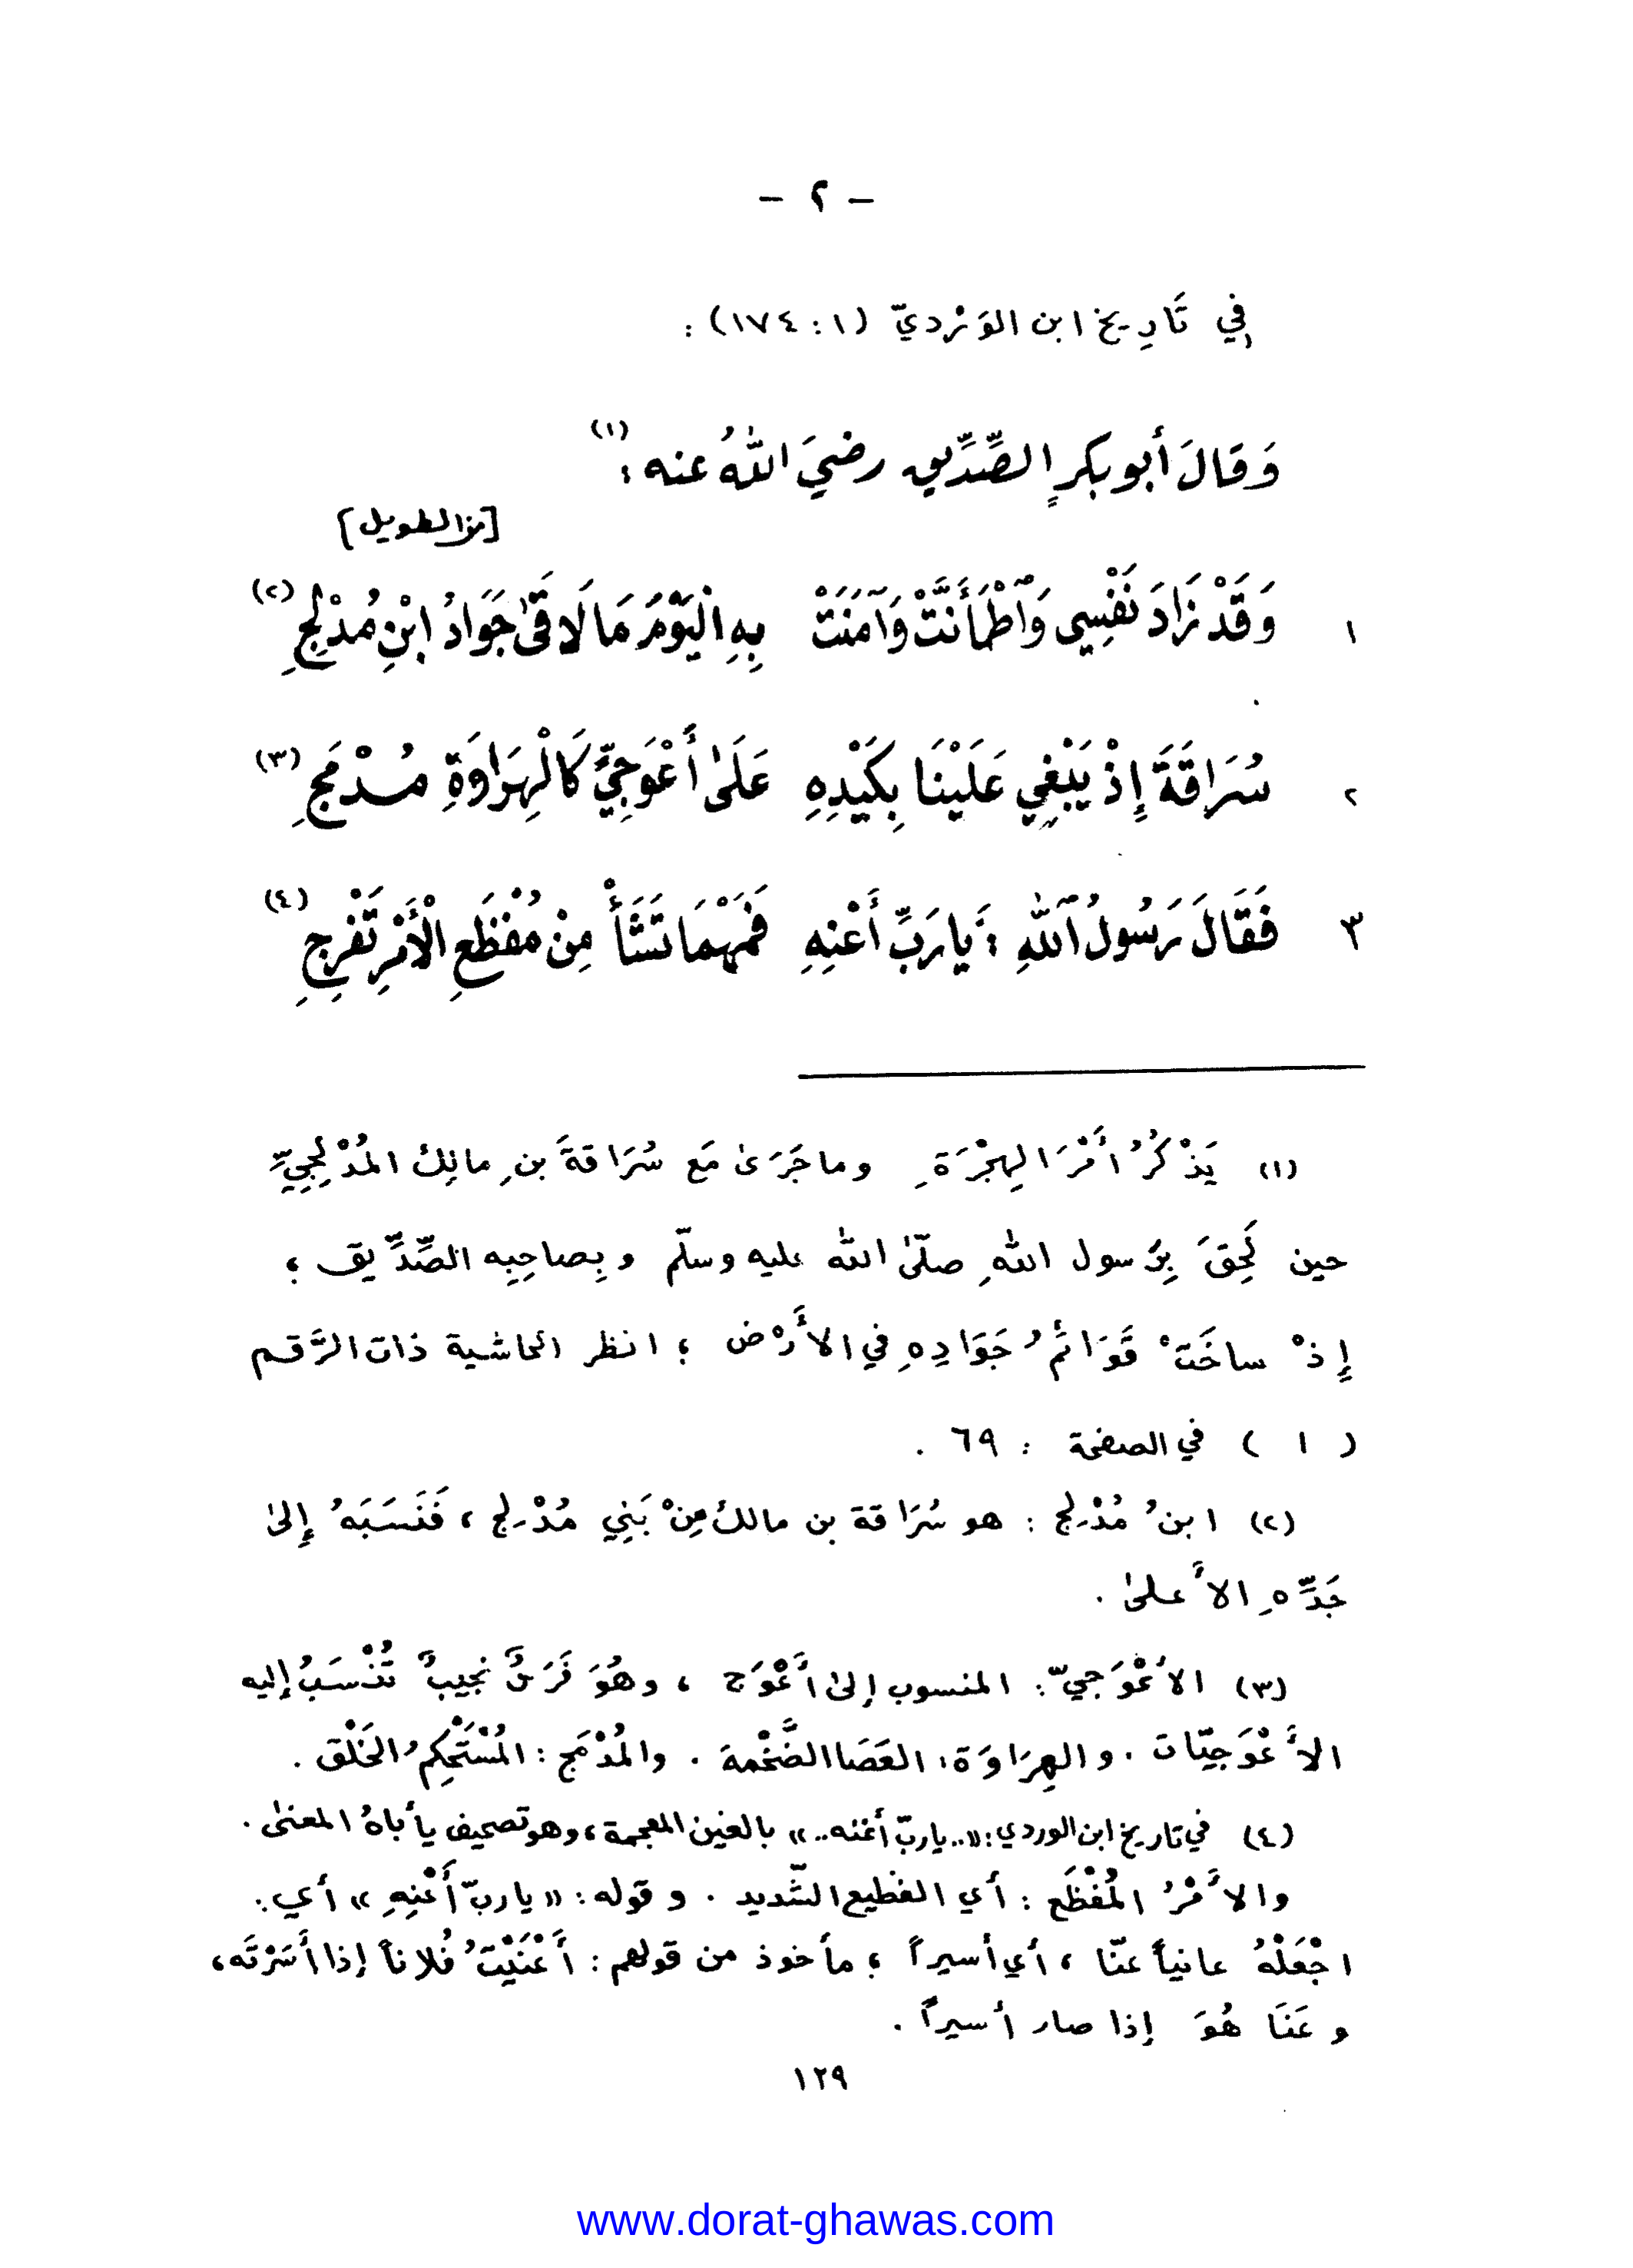 - ٢ -
في تَارِيخ ابن الوَرْديّ (١ : ١٧٤) :
وَقَالَ أبو بكرٍ الصِّدِّيق رضيَ اللهُ عنه : (١)
[من الطويل]
١ وَقَدْ زَادَ نَفْسِي وَٱطْمَأَنَّتْ وَآمَنَتْ بِهِ الْيَوْمَ مَا لَاقَىٰ جَوَادُ ابْنِ مُدْلِجِ (٢)
٢ سُرَاقَةَ إِذْ يَبْغِي عَلَيْنَا بِكَيْدِهِ عَلَىٰ أَعْوَجِيٍّ كَالْهِرَاوَةِ مُدْمَجِ (٣)
٣ فَقَالَ رَسُولُ ٱللهِ : يَا رَبِّ أَعْنِهِ فَمَهْمَا تَشَأْ مِنْ مُفْظَعِ الْأَمْرِ تَفْرِجِ (٤)
(١) يَذْكُرُ أَمْرَ الهِجْرَةِ وما جَرَىٰ مَع سُرَاقةَ بنِ مالِك المُدْلِجِيِّ
حين لَحِقَ بِرَسول اللهِ صلّىٰ الله عليه وسلّم وبِصاحِبِه الصِّدِّيق ؛
إِذْ ساخَتْ قَوَائمُ جَوَادِهِ في الأَرْض ؛ انظر الحاشية ذات الرَّقم
( ١ ) في الصفحة : ٦٩ .
(٢) ابنُ مُدْلج : هو سُرَاقة بن مالك مِنْ بَنِي مُدْلج ، فَنَسَبَهُ إِلىٰ
جَدِّهِ الأَعلىٰ .
(٣) الأعْوَجيّ : المنسوب إلىٰ أَعْوَج ، وهُوَ فَرَسٌ نجيبٌ تُنْسَبُ إليه
الأَعْوَجِيّات . والهِرَاوَة : العَصَا الضَّخْمة . والمُدْمَج : المُسْتَحْكِمُ الخَلْق .
(٤) في تاريخ ابن الوردي : «.. يا ربّ أغنه ..» بالغين المعجمة ، وهو تصحيف يأباهُ المعنىٰ .
والأَمْرُ المُفْظَع : أي الفظيع الشّديد . وقوله : « يا ربّ أَعْنِهِ » أي :
اجْعَلْهُ عانياً عنّا ، أي أسيراً ؛ مأخوذ من قولهم : أَعْنَيْتُ فُلاناً إذا أَسَرْتَه ،
وعَنَا هُوَ إذا صار أسيراً .
١٢٩
www.dorat-ghawas.com